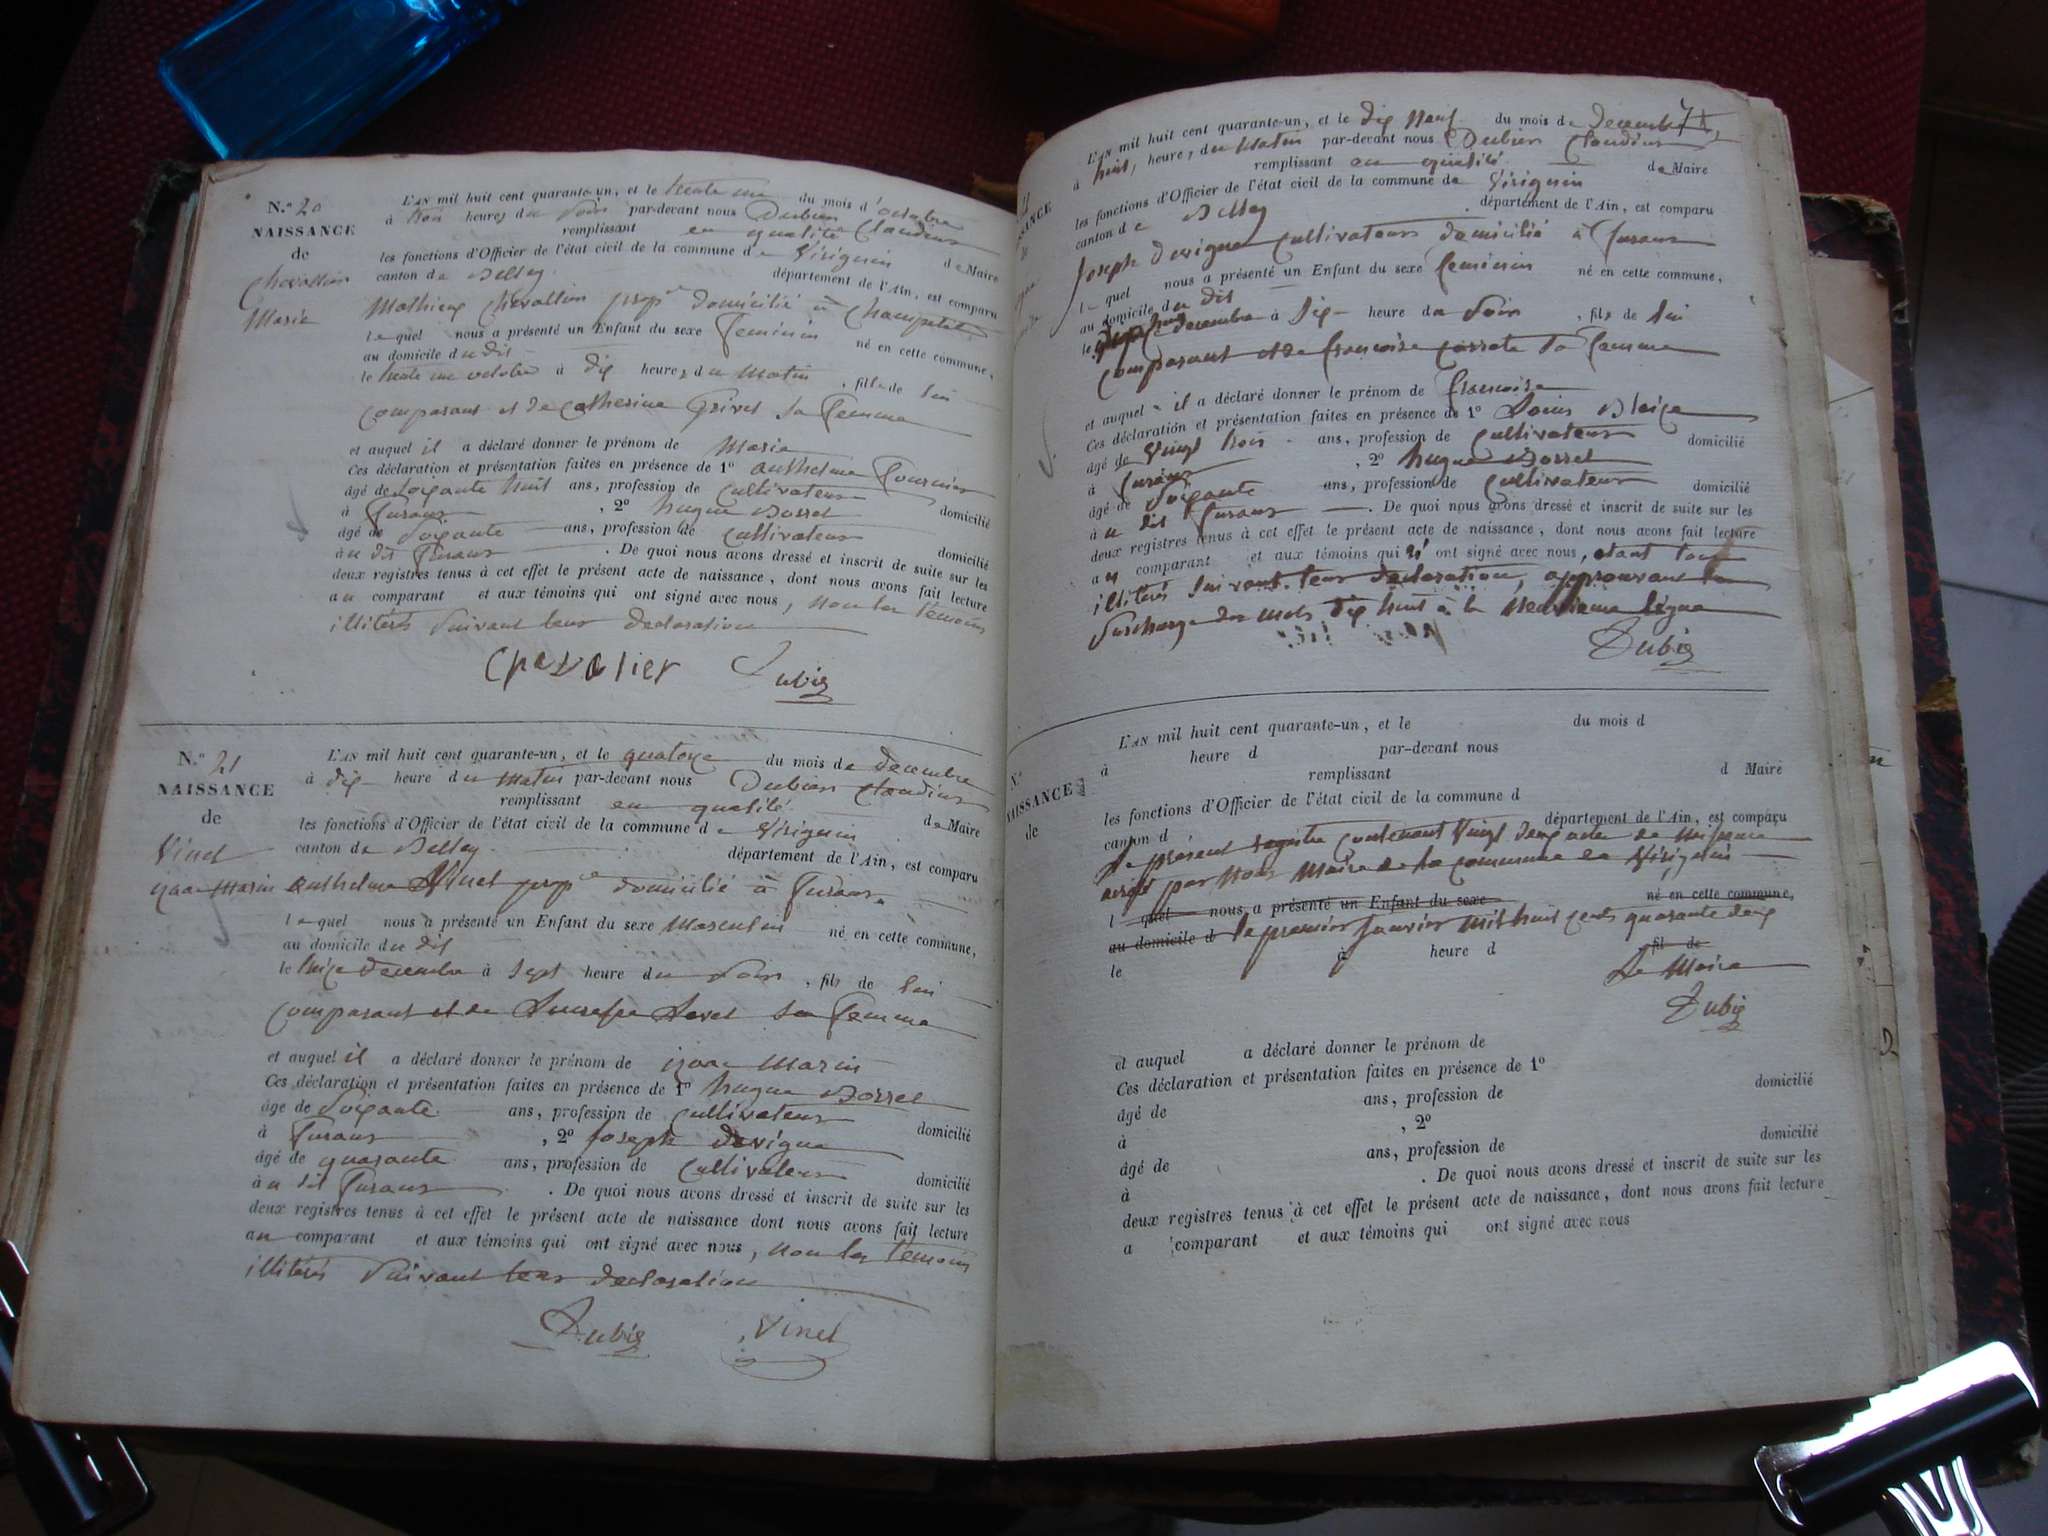 N.º 20
NAISSANCE
de
Chevallier
Marie
L'AN mil huit cent quarante-un, et le trente un du mois d'octobre
à trois heures du soir par-devant nous Dubien Claudius
remplissant en qualité de Maire
les fonctions d'Officier de l'état civil de la commune de Virignin
canton de Belley département de l'Ain, est comparu
Mathieu Chevallier prop.re domicilié à
lequel nous a présenté un Enfant du sexe feminin né en cette commune,
au domicile du dit
le trente un octobre à dix heures du matin, fille de lui
comparant et de Catherine Grivet sa femme
et auquel il a déclaré donner le prénom de Marie
Ces déclaration et présentation faites en présence de 1º Anthelme Fournier
âgé de soixante huit ans, profession de cultivateur domicilié
à Furans, 2º hugue Borret
âgé de soixante ans, profession de cultivateur domicilié
à u dit Furans. De quoi nous avons dressé et inscrit de suite sur les
deux registres tenus à cet effet le présent acte de naissance, dont nous avons fait lecture
au comparant et aux témoins qui ont signé avec nous, non les temoins
illiterés suivant leur declaration
Chevalier Dubien
N.º 21
NAISSANCE
de
Vinet
isaac Marin
L'AN mil huit cent quarante-un, et le quatorze du mois de decembre
à dix heure du matin par-devant nous Dubien Claudius
remplissant en qualité de Maire
les fonctions d'Officier de l'état civil de la commune de Virignin
canton de Belley département de l'Ain, est comparu
anthelme Vinet prop.re domicilié à Furans
lequel nous a présenté un Enfant du sexe masculin né en cette commune,
au domicile du dit
le treize decembre à sept heure du soir, fils de lui
comparant et de sa femme
et auquel il a déclaré donner le prénom de isaac Marin
Ces déclaration et présentation faites en présence de 1º hugue Borret
âgé de soixante ans, profession de cultivateur domicilié
à Furans, 2º Joseph Devigne
âgé de quarante ans, profession de cultivateur domicilié
à u dit Furans. De quoi nous avons dressé et inscrit de suite sur les
deux registres tenus à cet effet le présent acte de naissance dont nous avons fait lecture
au comparant et aux témoins qui ont signé avec nous, non les temoins
illiterés suivant leur declaration
Dubien Vinet
L'AN mil huit cent quarante-un, et le dix neuf du mois de decembre
à huit heures du matin par-devant nous Dubien Claudius
remplissant en qualité de Maire
les fonctions d'Officier de l'état civil de la commune de Virignin
canton de Belley département de l'Ain, est comparu
Joseph Devigne cultivateur domicilié à Furans
lequel nous a présenté un Enfant du sexe feminin né en cette commune,
au domicile du dit
le dix huit decembre à dix heure du soir, fils de lui
comparant et de françoise sa femme
et auquel il a déclaré donner le prénom de françoise
Ces déclaration et présentation faites en présence de 1º Louis Bleize
âgé de vingt trois ans, profession de cultivateur domicilié
à Furans, 2º hugue Borret
âgé de soixante ans, profession de cultivateur domicilié
à u dit Furans. De quoi nous avons dressé et inscrit de suite sur les
deux registres tenus à cet effet le présent acte de naissance, dont nous avons fait lecture
au comparant et aux témoins qui n'ont signé avec nous, etant tous
illiterés suivant leur declaration, approuvant la
surcharge des mots dix huit à la neuvieme ligne
Dubien
N.º
NAISSANCE
de
L'AN mil huit cent quarante-un, et le du mois d
à heure d par-devant nous
remplissant d Maire
les fonctions d'Officier de l'état civil de la commune d
canton d département de l'Ain, est comparu
Le present registre contenant vingt deux actes de naissance
par nous Maire de la commune de Virignin
l quel nous a présenté un Enfant du sexe né en cette commune,
au domicile d le premier Janvier mil huit cents quarante deux
le à heure d fil de
Le Maire
Dubien
et auquel a déclaré donner le prénom de
Ces déclaration et présentation faites en présence de 1º
âgé de ans, profession de domicilié
à , 2º
âgé de ans, profession de domicilié
à . De quoi nous avons dressé et inscrit de suite sur les
deux registres tenus à cet effet le présent acte de naissance, dont nous avons fait lecture
a comparant et aux témoins qui ont signé avec nous